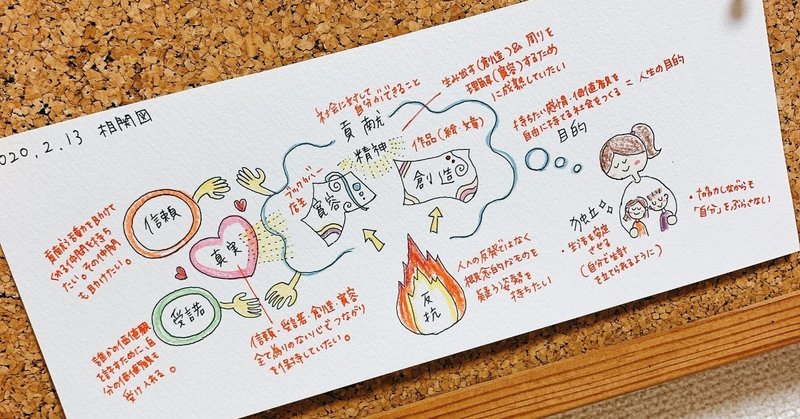 2020.2.13 相関図
社会に対して
自分ができること
貢献
精神
生み出す(創造)& 周りを
理解(寛容)するため
に成熟していたい
作品(絵・文章)
ブックカバー
店主
寛容
創造
持ちたい感情・価値観を
自由に持てる社会をつくる = 人生の目的
目的
信頼
真実
受諾
反抗
くれる仲間を持ち
たい。その仲間
も助けたい。
誰かの価値観
を許すために、自
分の価値観も
受け入れる。
信頼・受諾・創造・寛容
全て偽りのない心でつながり
を保持していたい。
人への反発ではなく
概念的なものを
疑う反発を
持ちたい
独立
・生活を安定
させる
(自分で生計
を立てられるように)
・協力しながらも
「自分」をぶらさない